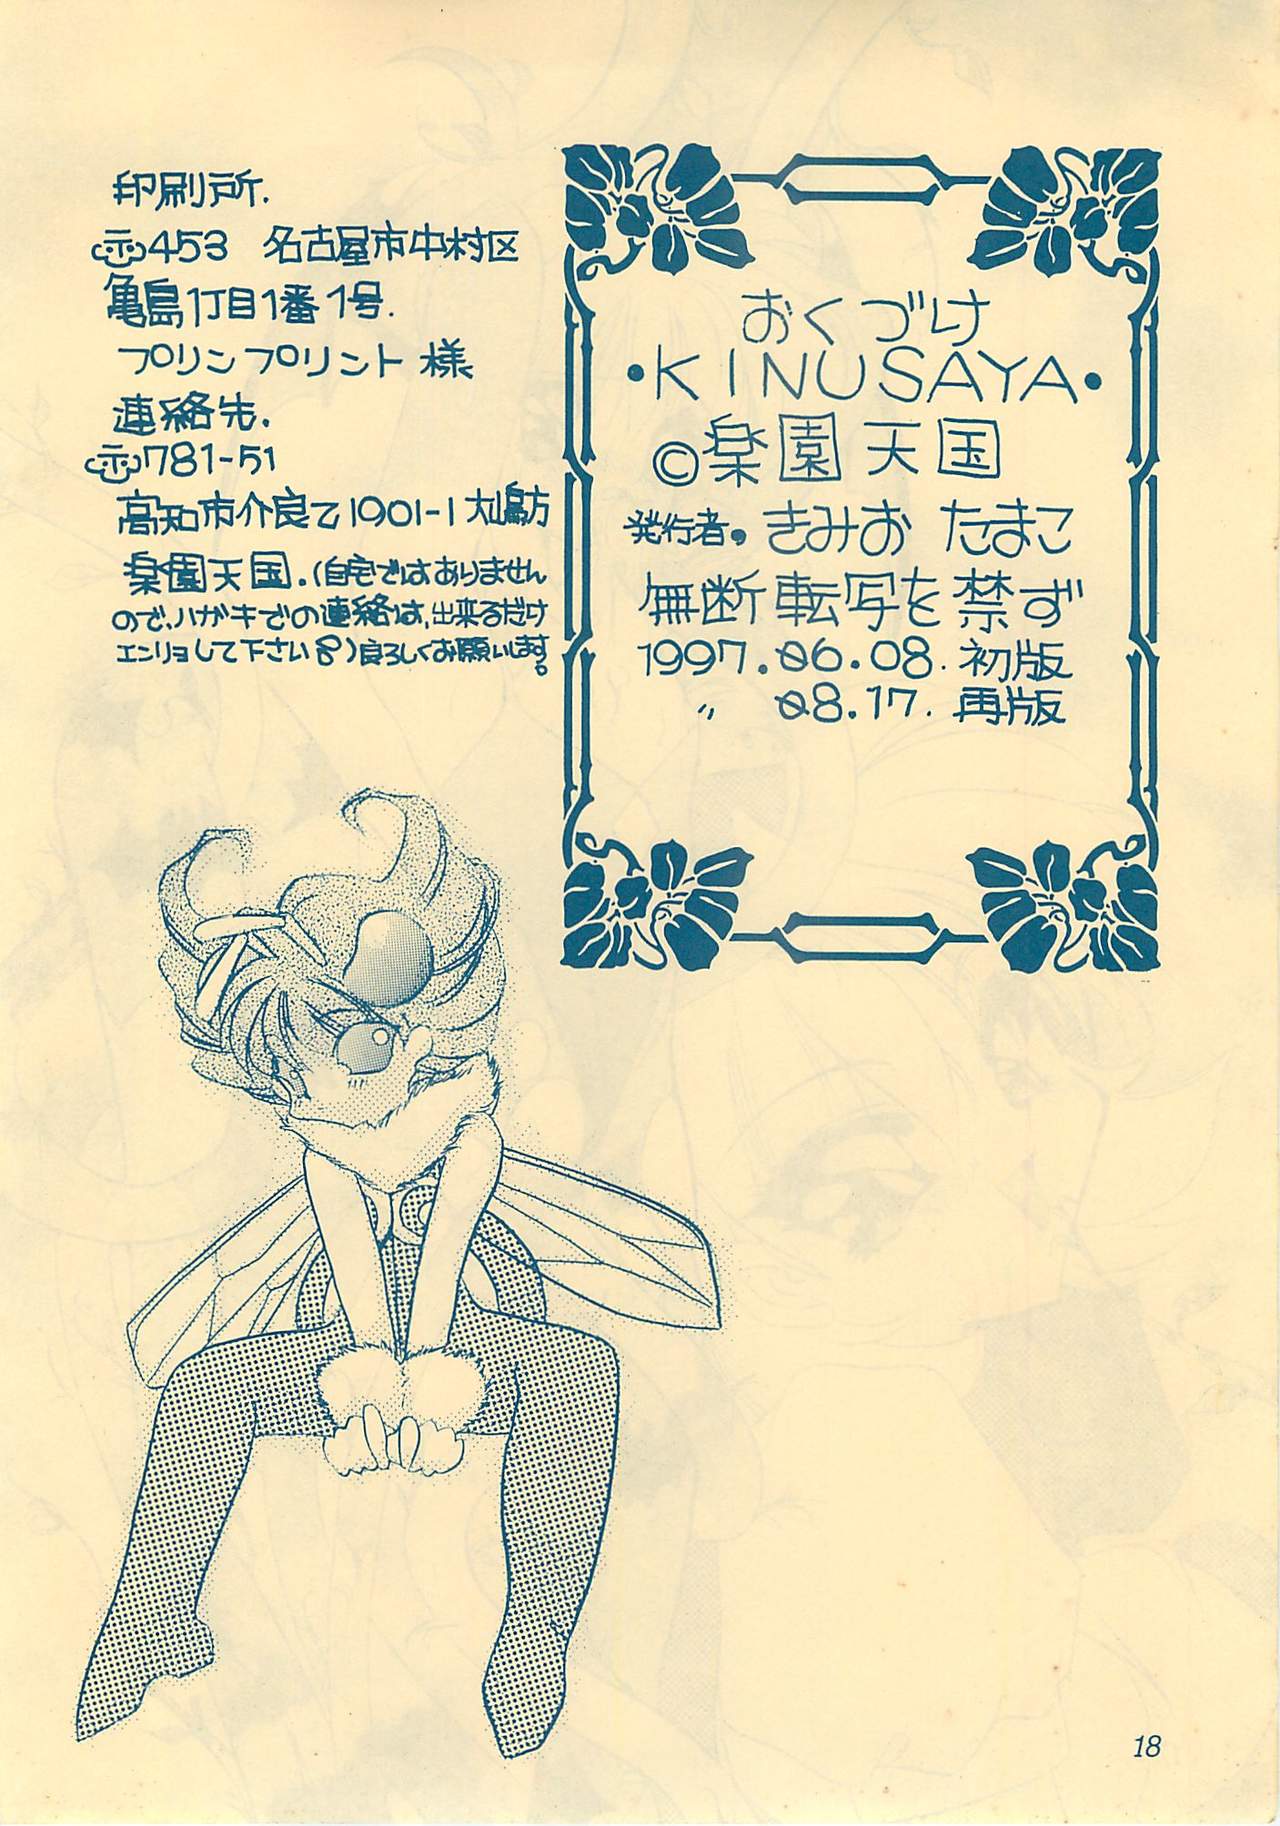 おくづけ
・KINUSAYA・
©楽園天国
発行者。きみお たまこ
無断転写を禁ず
1997.06.08.初版
〃 08.17.再版
印刷所.
〒453 名古屋市中村区
亀島1丁目1番1号.
プリンプリント様
連絡先.
〒781-51
高知市介良乙1901-1 大嶋方
楽園天国.(自宅ではありません
ので、ハガキでの連絡は、出来るだけ
エンリョして下さい)良ろしくお願いします。
18